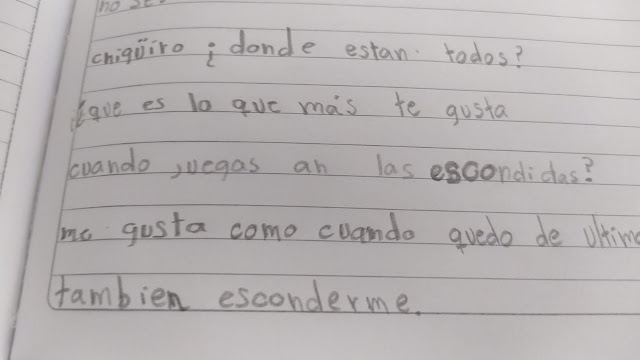 no se.
chigüiro ¿ donde estan. todos?
¿que es lo que más te gusta
cuando juegas an las escondidas?
me gusta como cuamdo quedo de ultimo
tambien esconderme.